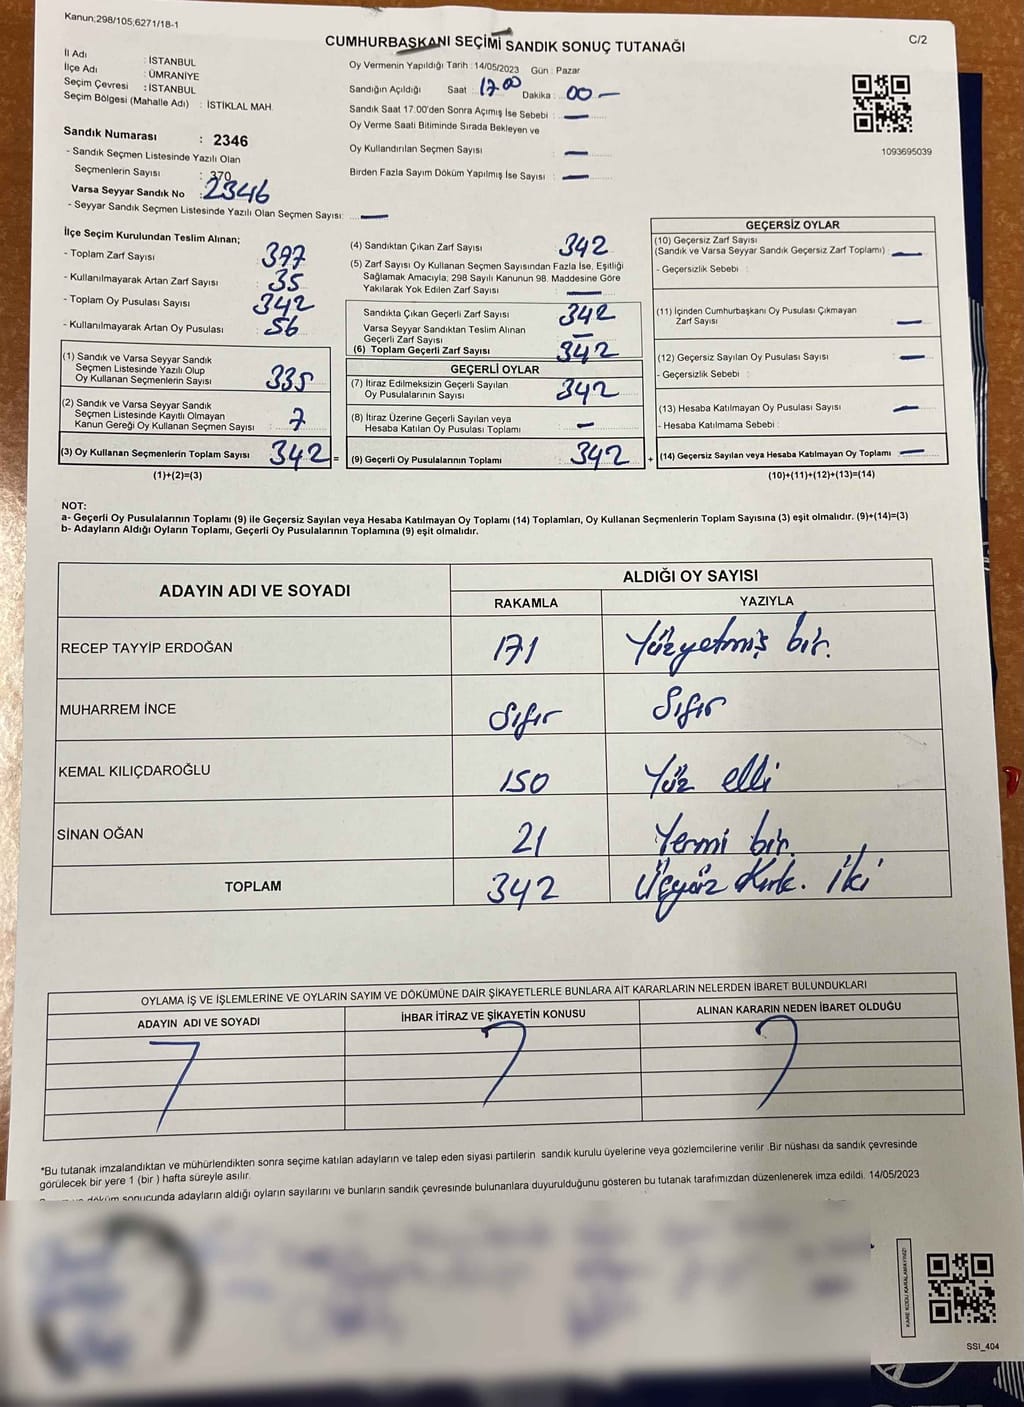 Kanun;298/105;6271/18-1
C/2
CUMHURBAŞKANI SEÇİMİ SANDIK SONUÇ TUTANAĞI
İl Adı : İSTANBUL
İlçe Adı : ÜMRANİYE
Seçim Çevresi : İSTANBUL
Seçim Bölgesi (Mahalle Adı) : İSTİKLAL MAH.
Sandık Numarası : 2346
- Sandık Seçmen Listesinde Yazılı Olan
Seçmenlerin Sayısı : 370
Varsa Seyyar Sandık No : 2346
- Seyyar Sandık Seçmen Listesinde Yazılı Olan Seçmen Sayısı: —
Oy Vermenin Yapıldığı Tarih : 14/05/2023 Gün : Pazar
Sandığın Açıldığı Saat : 17.00 Dakika : 00 —
Sandık Saat 17.00'den Sonra Açımış İse Sebebi : —
Oy Verme Saati Bitiminde Sırada Bekleyen ve
Oy Kullandırılan Seçmen Sayısı : —
Birden Fazla Sayım Döküm Yapılmış İse Sayısı : —
1093695039
İlçe Seçim Kurulundan Teslim Alınan;
- Toplam Zarf Sayısı : 377
- Kullanılmayarak Artan Zarf Sayısı : 35
- Toplam Oy Pusulası Sayısı : 342
- Kullanılmayarak Artan Oy Pusulası : 56
(1) Sandık ve Varsa Seyyar Sandık
Seçmen Listesinde Yazılı Olup
Oy Kullanan Seçmenlerin Sayısı : 335
(2) Sandık ve Varsa Seyyar Sandık
Seçmen Listesinde Kayıtlı Olmayan
Kanun Gereği Oy Kullanan Seçmen Sayısı : 7
(3) Oy Kullanan Seçmenlerin Toplam Sayısı 342 =
(1)+(2)=(3)
(4) Sandıktan Çıkan Zarf Sayısı 342
(5) Zarf Sayısı Oy Kullanan Seçmen Sayısından Fazla İse, Eşitliği
Sağlamak Amacıyla; 298 Sayılı Kanunun 98. Maddesine Göre
Yakılarak Yok Edilen Zarf Sayısı : —
Sandıkta Çıkan Geçerli Zarf Sayısı : 342
Varsa Seyyar Sandıktan Teslim Alınan
Geçerli Zarf Sayısı : —
(6) Toplam Geçerli Zarf Sayısı 342
GEÇERLİ OYLAR
(7) İtiraz Edilmeksizin Geçerli Sayılan
Oy Pusulalarının Sayısı : 342
(8) İtiraz Üzerine Geçerli Sayılan veya
Hesaba Katılan Oy Pusulası Toplamı : —
(9) Geçerli Oy Pusulalarının Toplamı : 342 +
GEÇERSİZ OYLAR
(10) Geçersiz Zarf Sayısı
(Sandık ve Varsa Seyyar Sandık Geçersiz Zarf Toplamı) : —
- Geçersizlik Sebebi :
(11) İçinden Cumhurbaşkanı Oy Pusulası Çıkmayan
Zarf Sayısı : —
(12) Geçersiz Sayılan Oy Pusulası Sayısı : —
- Geçersizlik Sebebi :
(13) Hesaba Katılmayan Oy Pusulası Sayısı : —
- Hesaba Katılmama Sebebi :
(14) Geçersiz Sayılan veya Hesaba Katılmayan Oy Toplamı : —
(10)+(11)+(12)+(13)=(14)
NOT:
a- Geçerli Oy Pusulalarının Toplamı (9) ile Geçersiz Sayılan veya Hesaba Katılmayan Oy Toplamı (14) Toplamları, Oy Kullanan Seçmenlerin Toplam Sayısına (3) eşit olmalıdır. (9)+(14)=(3)
b- Adayların Aldığı Oyların Toplamı, Geçerli Oy Pusulalarının Toplamına (9) eşit olmalıdır.
ADAYIN ADI VE SOYADI ALDIĞI OY SAYISI
RAKAMLA YAZIYLA
RECEP TAYYİP ERDOĞAN 171 Yüzyetmiş bir.
MUHARREM İNCE Sıfır Sıfır
KEMAL KILIÇDAROĞLU 150 Yüz elli
SİNAN OĞAN 21 Yermi bir.
TOPLAM 342 Üçyüz Kırk. İki
OYLAMA İŞ VE İŞLEMLERİNE VE OYLARIN SAYIM VE DÖKÜMÜNE DAİR ŞİKAYETLERLE BUNLARA AİT KARARLARIN NELERDEN İBARET BULUNDUKLARI
ADAYIN ADI VE SOYADI İHBAR İTİRAZ VE ŞİKAYETİN KONUSU ALINAN KARARIN NEDEN İBARET OLDUĞU
*Bu tutanak imzalandıktan ve mühürlendikten sonra seçime katılan adayların ve talep eden siyasi partilerin sandık kurulu üyelerine veya gözlemcilerine verilir .Bir nüshası da sandık çevresinde
görülecek bir yere 1 (bir ) hafta süreyle asılır.
döküm sonucunda adayların aldığı oyların sayılarını ve bunların sandık çevresinde bulunanlara duyurulduğunu gösteren bu tutanak tarafımızdan düzenlenerek imza edildi. 14/05/2023
KARE KODU KARALAMAYINIZ!
SSI_404